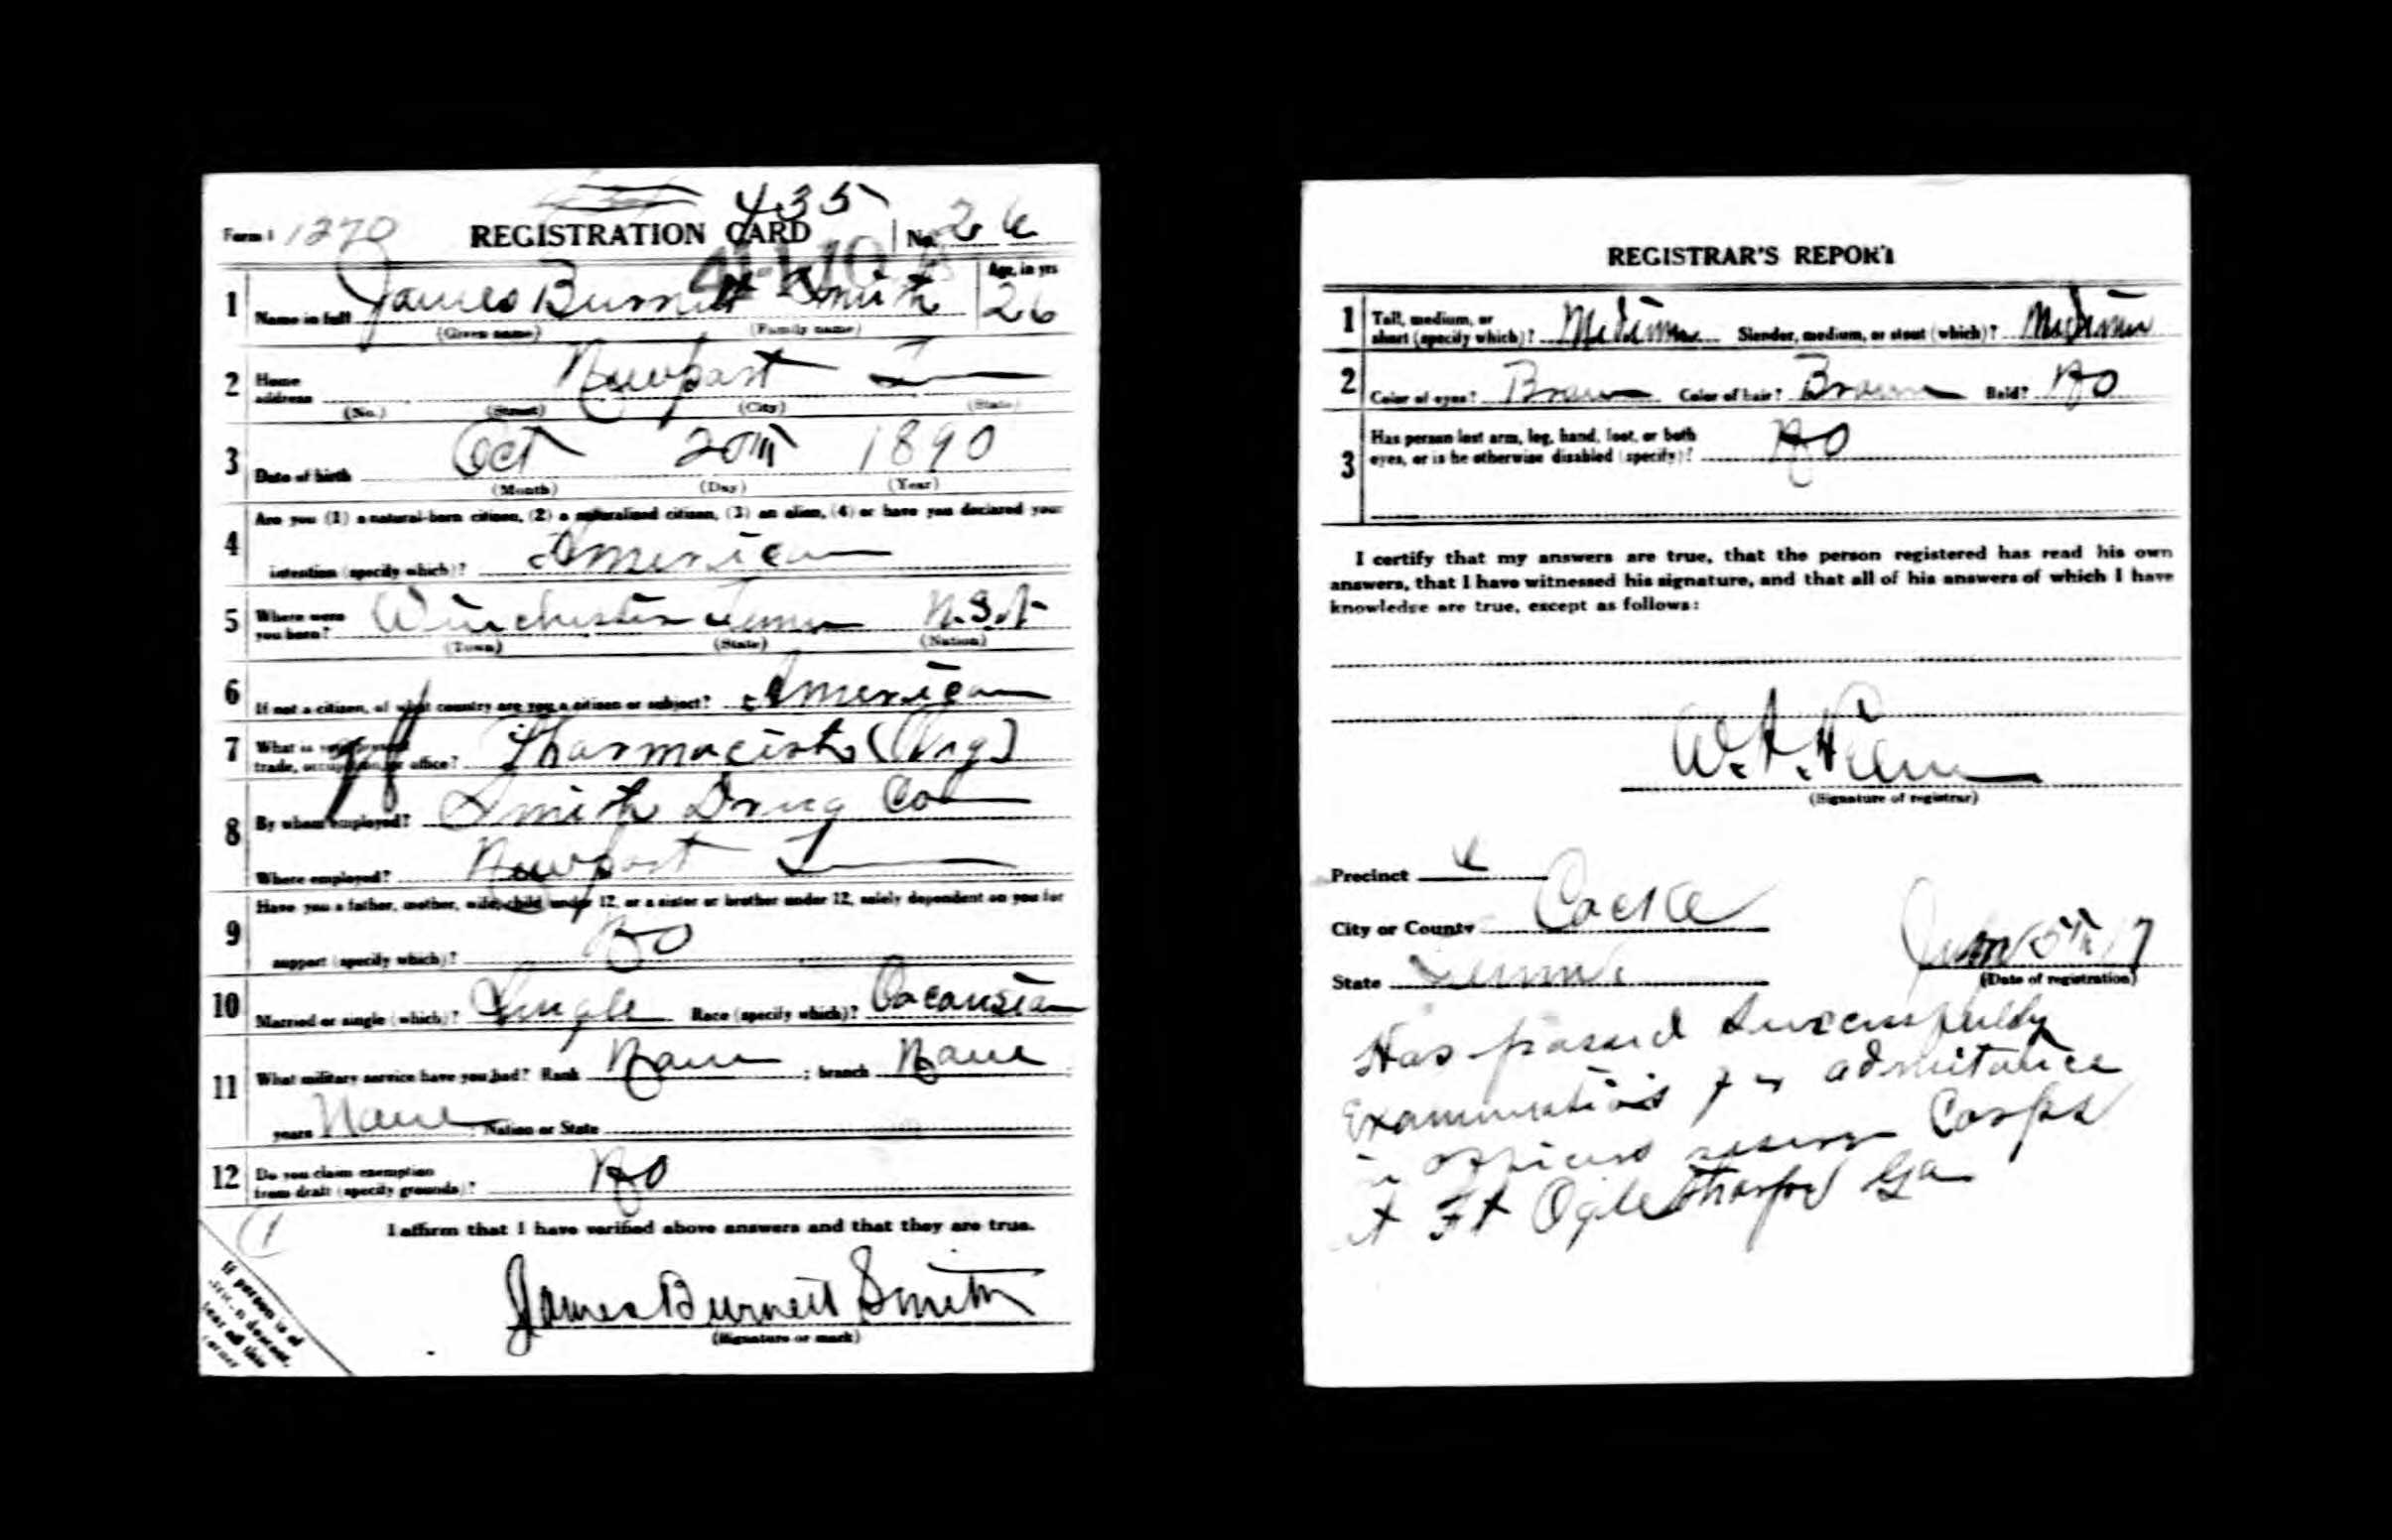 435
Form 1 1270 REGISTRATION CARD No. 26
1 Name in full James Burnett Smith Age, in yrs 26
(Given name) (Family name)
2 Home address Newport T
(No.) (Street) (City) (State)
3 Date of birth Oct 20th 1890
(Month) (Day) (Year)
4 Are you (1) a natural-born citizen, (2) a naturalized citizen, (3) an alien, (4) or have you declared your
intention (specify which)? American
5 Where were you born? Winchester Tenn U.S.A
(Town) (State) (Nation)
6 If not a citizen, of what country are you a citizen or subject? American
7 What is your present trade, occupation, or office? Pharmacist
8 By whom employed? Smith Drug Co
Where employed? Newport T
9 Have you a father, mother, wife, child under 12, or a sister or brother under 12, solely dependent on you for
support (specify which)? No
10 Married or single (which)? Single Race (specify which)? Cacausian
11 What military service have you had? Rank None ; branch None ;
years None ; Nation or State
12 Do you claim exemption from draft (specify grounds)? No
I affirm that I have verified above answers and that they are true.
James Burnett Smith
(Signature or mark)
If person is of
African descent,
tear off this
corner
REGISTRAR'S REPORT
1 Tall, medium, or short (specify which)? Medium Slender, medium, or stout (which)? Medium
2 Color of eyes? Brown Color of hair? Brown Bald? No
3 Has person lost arm, leg, hand, foot, or both
eyes, or is he otherwise disabled (specify)? No
I certify that my answers are true, that the person registered has read his own
answers, that I have witnessed his signature, and that all of his answers of which I have
knowledge are true, except as follows:
W. A.
(Signature of registrar)
Precinct
City or County Cocke
State Tenn
June 5th 17
(Date of registration)
Has passed Successfully
Examination for admitance
in officers reserve Corps
at Ft Oglethorpe Ga